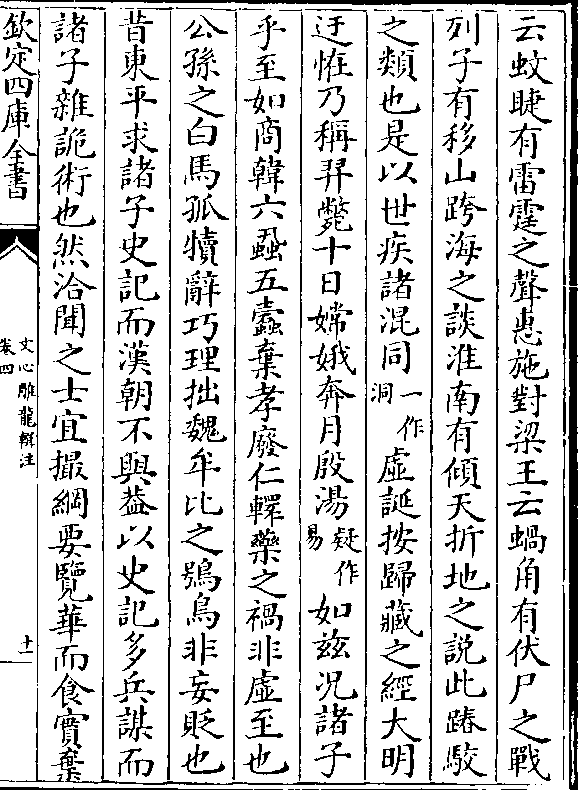 云蚊睫有雷霆之聲惠施對梁王云蝸角有伏尸之戰
列子有移山跨海之談淮南有傾天折地之説此踳駮
之類也是以世疾諸混同一作洞虛誕按歸藏之經大明
迂恠乃稱羿斃十日嫦娥奔月殷湯疑作易如兹况諸子
乎至如商韓六蝨五蠧棄孝廢仁轘藥之禍非虛至也
公孫之白馬孤犢辭巧理拙魏牟比之鴞鳥非妄貶也
昔東平求諸子史記而漢朝不與葢以史記多兵謀而
諸子雜詭術也然洽聞之士宜撮綱要覽華而食實棄
欽定四庫全書
文心雕龍輯注
卷四
十一